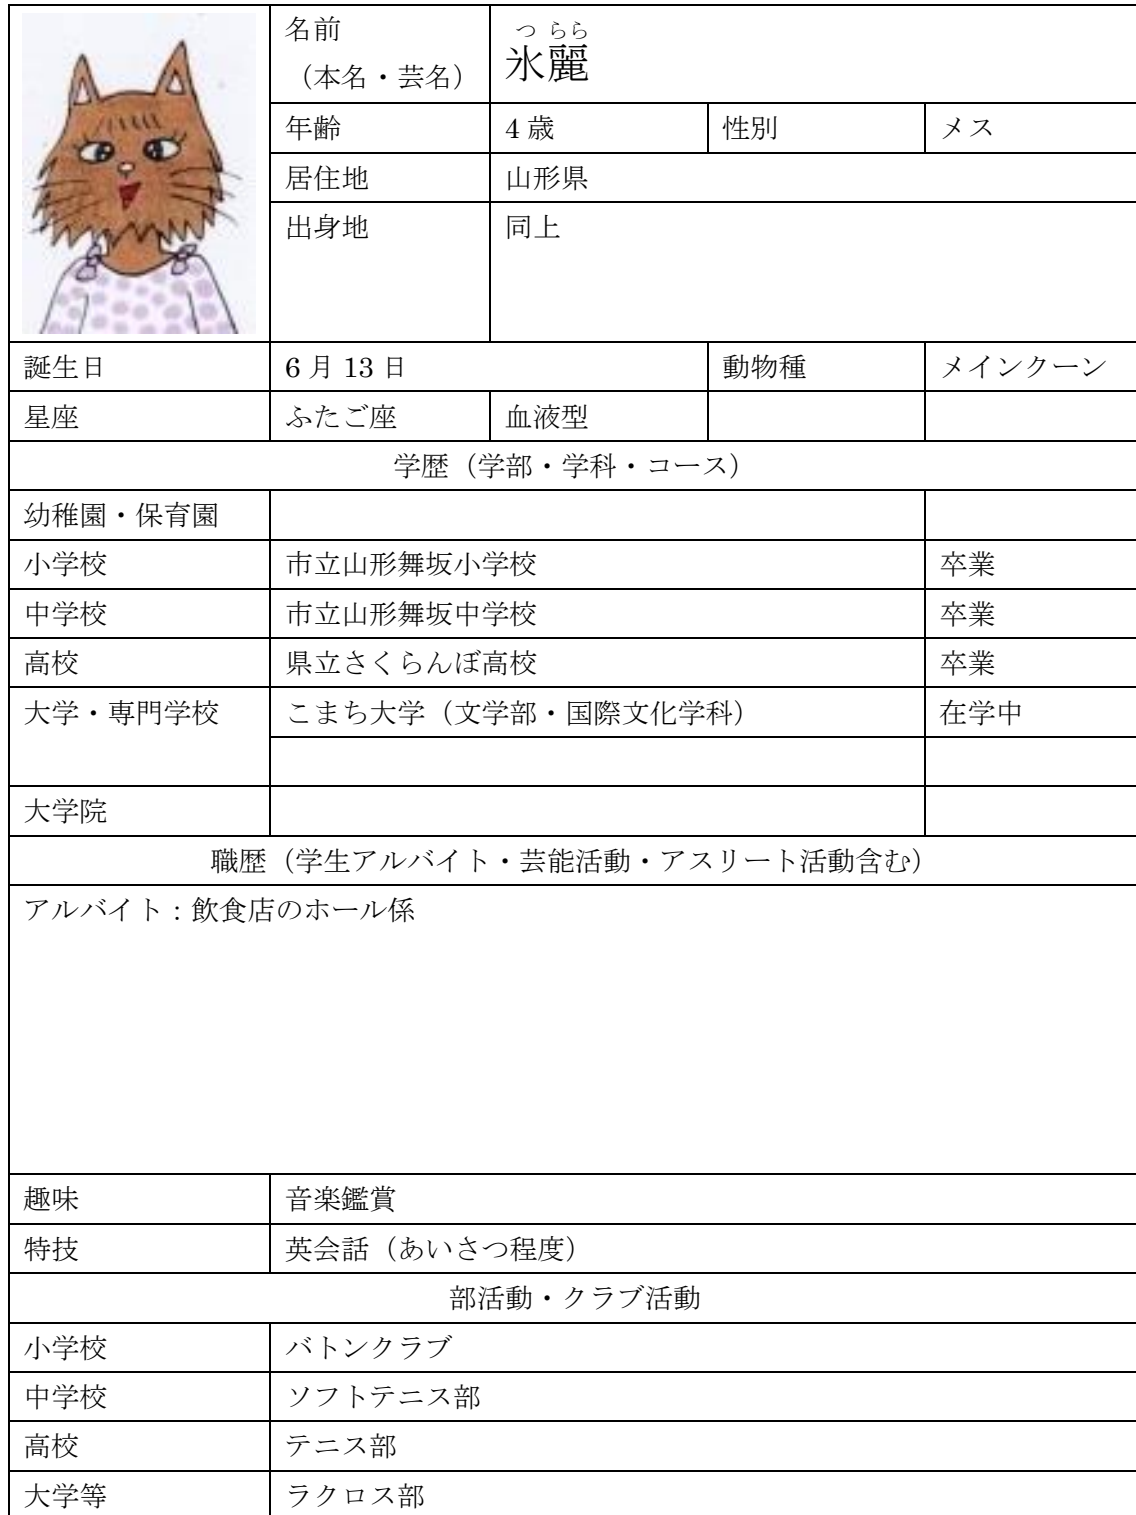 名前
（本名・芸名）
つ らら
氷麗
年齢 4歳 性別 メス
居住地 山形県
出身地 同上
誕生日 6月13日 動物種 メインクーン
星座 ふたご座 血液型
学歴（学部・学科・コース）
幼稚園・保育園
小学校 市立山形舞坂小学校 卒業
中学校 市立山形舞坂中学校 卒業
高校 県立さくらんぼ高校 卒業
大学・専門学校 こまち大学（文学部・国際文化学科） 在学中
大学院
職歴（学生アルバイト・芸能活動・アスリート活動含む）
アルバイト：飲食店のホール係
趣味 音楽鑑賞
特技 英会話（あいさつ程度）
部活動・クラブ活動
小学校 バトンクラブ
中学校 ソフトテニス部
高校 テニス部
大学等 ラクロス部